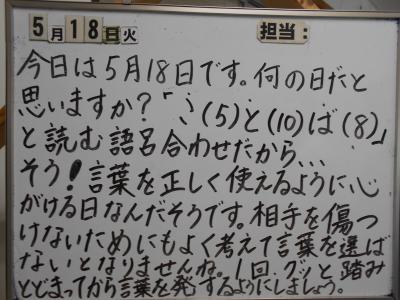 5月18日火 担当:
今日は5月18日です。何の日だと
思いますか？「こ(5)と(10)ば(8)」
と読む語呂合わせだから...
そう！言葉を正しく使えるように心
がける日なんだそうです。相手を傷つ
けないためにもよく考えて言葉を選ば
ないとなりませんね。1回、グッと踏み
とどまってから言葉を発するようにしましょう。